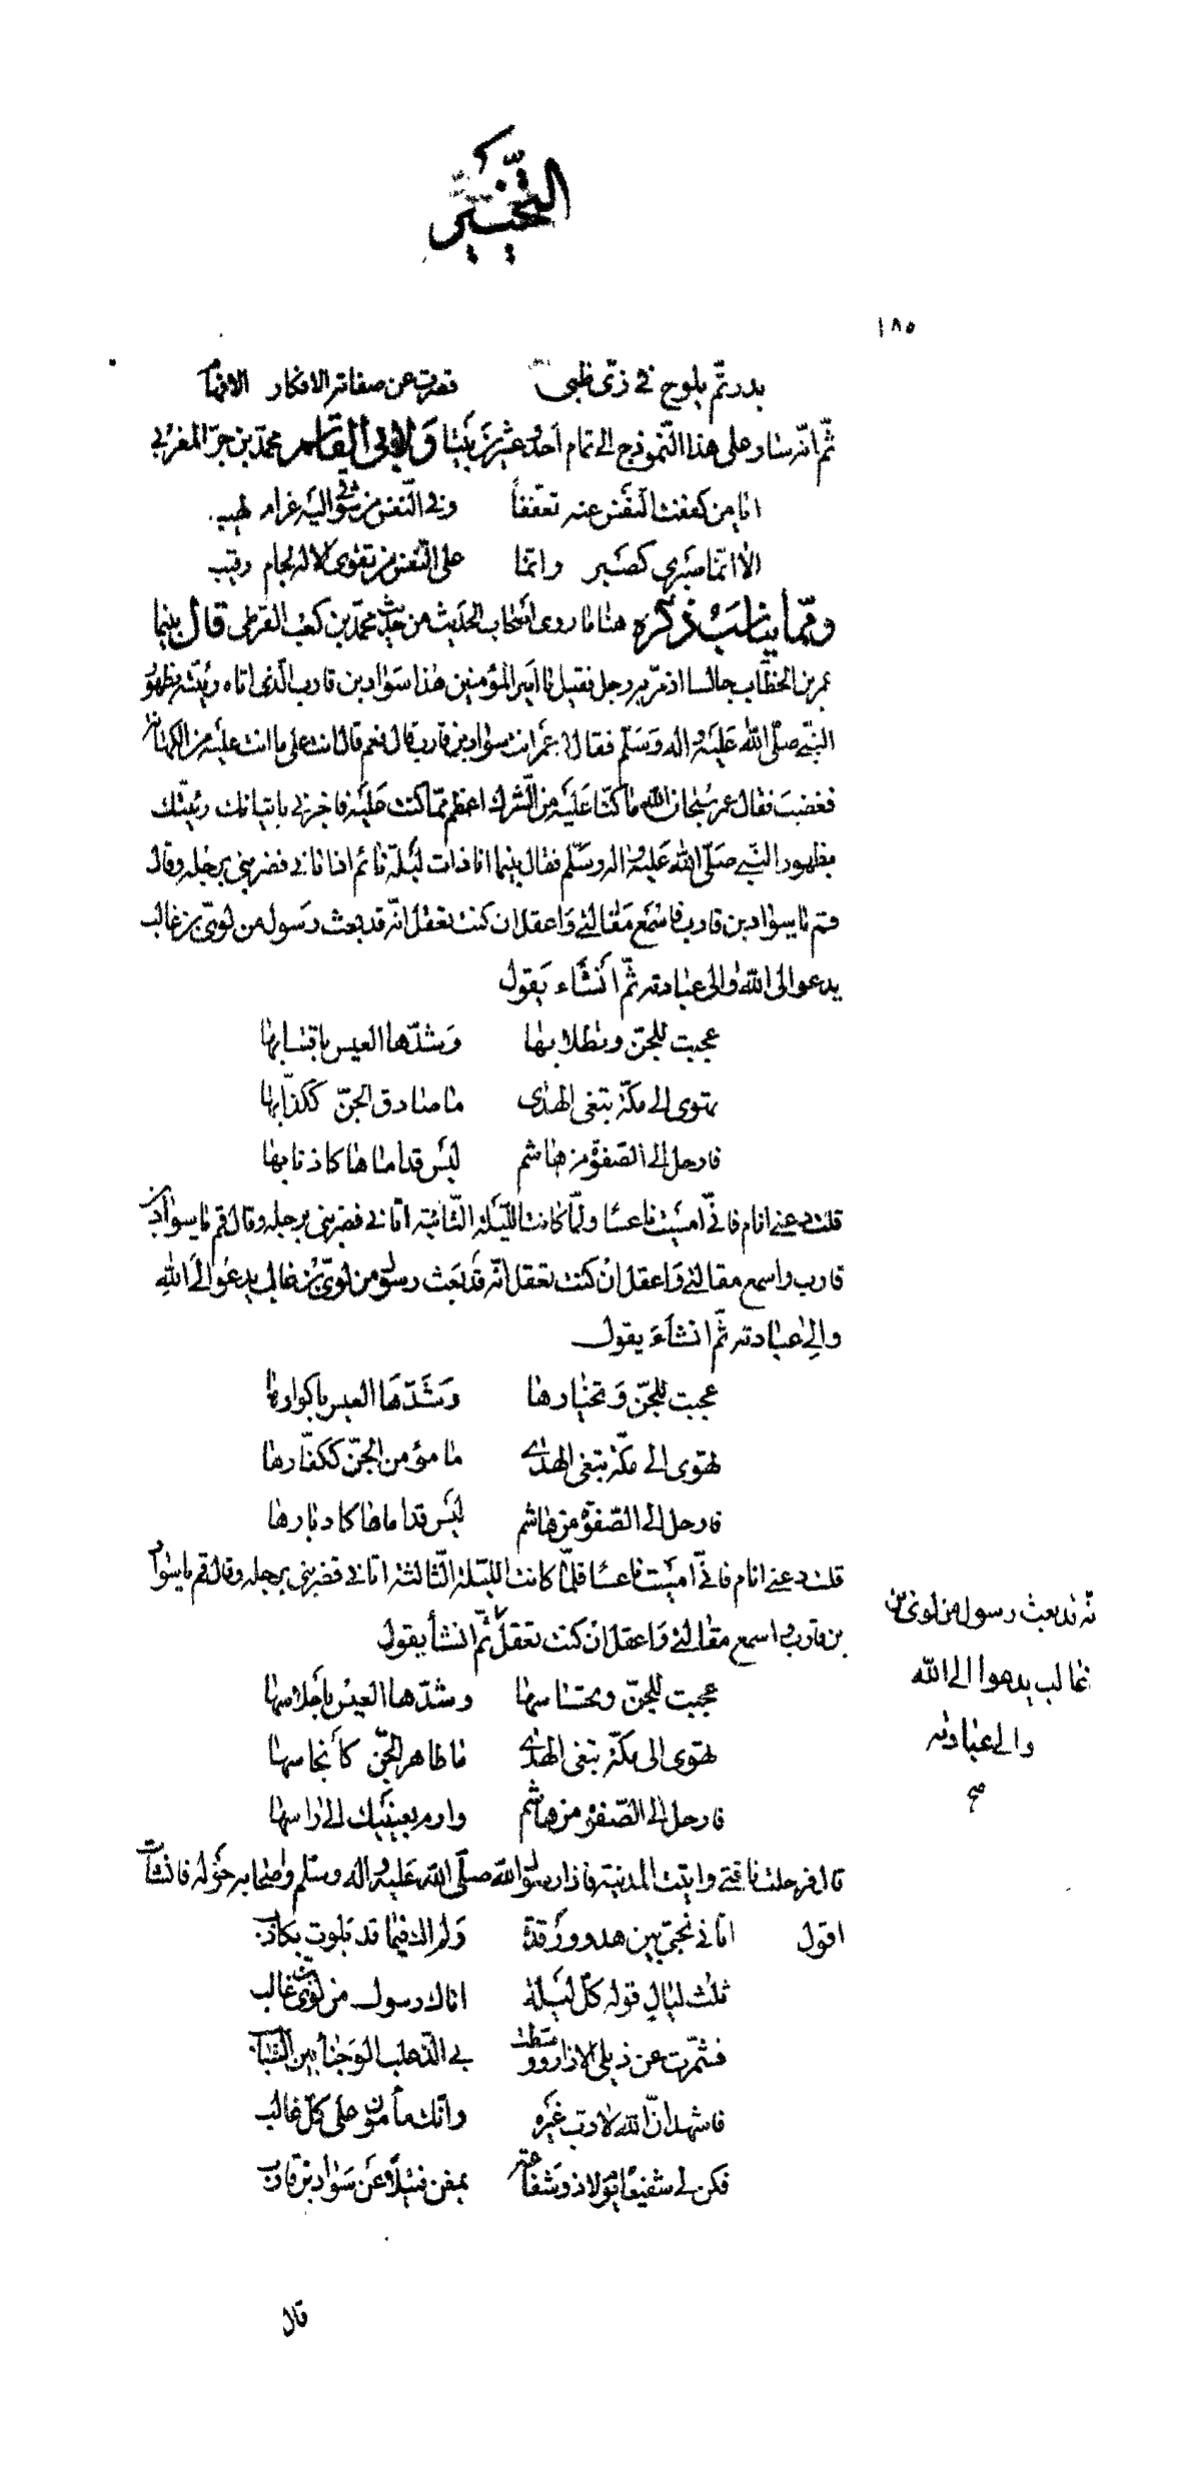 التخيير
١٨٥
بدر تمّ يلوح في زىّ ظبى قصرت عن صفاته الافكار الافهام
ثمّ انّه سار على هذا النّموذج الى تمام أحد عشر بَيتا وَلابى القاسم محمّد بن جرّ المغربي
ايا من كففت النّفس عنه تعفّفاً وفي النّفس من شوقي اليه غرام لهيب
الا انّما صبرى كصَبر وانّما على النّفس من تقوى الاله لجام رقيب
وممّا يناسَبُ ذكره هنا ما روى أصحاب الحَديث من حديث محمّد بن كعب القرظى قال بينما
عمر بن الخطّاب جالسا اذ مرّ به رجل فقيل يا امير المؤمنين هذا سَواد بن قارب الّذى اتاه رئيّه بظهور
النّبي صلّى اللّه عليه واله وَسَلّم فقال له عمر انت سواد بن قارب قال نعم قال انت على ما انت عليه من الكهانة
فغضبَ فقال عمر سُبحان الله ما كنّا عَليه من الشّرك اعظم ممّا كنت عَليه فاخبرني باتيانك رئيّك
بظهور النّبي صَلّى اللّه عَليه واله وسَلّم فقال بينما انا ذات ليلة نائم اذ اتاني فضربني برجله وقال
قم يا سواد بن قارب فاسمَع مَقالتي وَاعقل ان كنت تعقل انّه قد بعث رَسول من لويّ بن غالب
يدعو الى اللّه والى عبادته ثمّ أنشَاء يَقول
عجبت للجنّ وتطلابها وَشدّها العيس باقتابها
تهوى الى مكّة تبتغى الهدى ما صادق الجنّ ككذّابها
فارحل الى الصّفوة من هاشم ليس قداماها كاذنابها
قلت دعني انام فانّي أمسَيت ناعسًا ولمّا كانت اللّيلة الثّانية اتاني فضربني برجله وقال قم يا سواد بن
قارب واسمع مقالتي وَاعقل ان كنت تعقل انّه قد بَعث رسول من لويّ بن غالب يدعُو الى اللّهِ
والى عبادته ثمّ انشاءَ يقول
عجبت للجنّ وَتخبارها وَشَدّهَا العيس باكوارها
تهوى الى مكّة تبتغى الهدى ما مؤمن الجنّ ككفّارها
فارحل الى الصّفوة من هاشم ليس قداماها كادبارها
قلت دعني انام فانّي أمسَيت ناعسًا فلمّا كانت اللّيلة الثّالثة اتاني فضربني برجله وقال قم يا سواد
بن قارب واسمع مقالتي وَاعقل ان كنت تعقل ثمّ انشأ يقول
انّه قد بعث رسول من لوى بن
غالب يدعوا الى الله
والى عبادته
صح
عجبت للجنّ وتحساسها وشدّها العيس باحلاسها
تهوى الى مكّة تبتغى الهدى ما طاهر الجنّ كأنجاسها
فارحل الى الصّفوة من هاشم وارم بعينيك الى راسها
قال فرحلت ناقتي واتيت المدينة فاذا رسول اللّه صلّى اللّه عَليه واله وسَلّم واصحابه حَوله فانشات
اقول اتاني نجيّ بين هدو ورَقدة وَلم اك فيما قد بلوت بكاذب
ثلث ليالٍ قوله كلّ ليلة اتاك رسول من لويّ بن غالب
فشمّرت عن ذيلى الازار ووسطت بي الذّعلب الوَجناء بين السّباسب
فاشهد انّ اللّه لا ربّ غيره وانّك مأمون على كلّ غالب
فكن لي شفيعًا يوم لا ذو شفاعة بمغن فتيلاً عَن سَواد بن قارب
قال